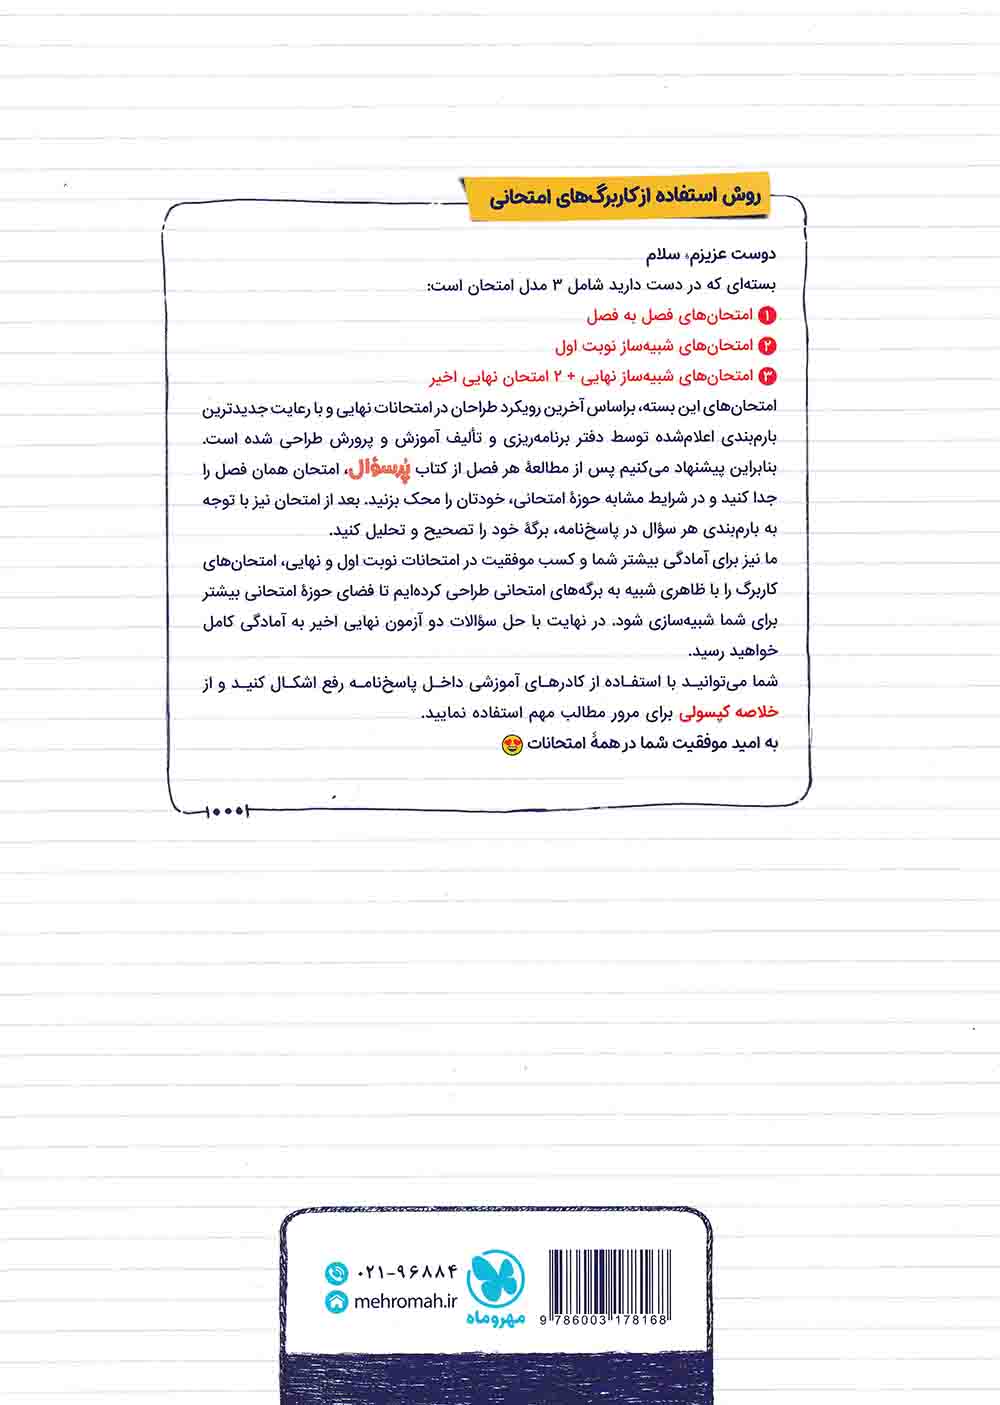 روش استفاده از کاربرگ‌های امتحانی
دوست عزیزم، سلام
بسته‌ای که در دست دارید شامل ۳ مدل امتحان است:
۱ امتحان‌های فصل به فصل
۲ امتحان‌های شبیه‌ساز نوبت اول
۳ امتحان‌های شبیه‌ساز نهایی + ۲ امتحان نهایی اخیر
امتحان‌های این بسته، براساس آخرین رویکرد طراحان در امتحانات نهایی و با رعایت جدیدترین
بارم‌بندی اعلام‌شده توسط دفتر برنامه‌ریزی و تألیف آموزش و پرورش طراحی شده است.
بنابراین پیشنهاد می‌کنیم پس از مطالعهٔ هر فصل از کتاب پُرسؤال، امتحان همان فصل را
جدا کنید و در شرایط مشابه حوزهٔ امتحانی، خودتان را محک بزنید. بعد از امتحان نیز با توجه
به بارم‌بندی هر سؤال در پاسخ‌نامه، برگهٔ خود را تصحیح و تحلیل کنید.
ما نیز برای آمادگی بیشتر شما و کسب موفقیت در امتحانات نوبت اول و نهایی، امتحان‌های
کاربرگ را با ظاهری شبیه به برگه‌های امتحانی طراحی کرده‌ایم تا فضای حوزهٔ امتحانی بیشتر
برای شما شبیه‌سازی شود. در نهایت با حل سؤالات دو آزمون نهایی اخیر به آمادگی کامل
خواهید رسید.
شما می‌توانید با استفاده از کادرهای آموزشی داخل پاسخ‌نامه رفع اشکال کنید و از
خلاصه کپسولی برای مرور مطالب مهم استفاده نمایید.
به امید موفقیت شما در همهٔ امتحانات
۰۲۱-۹۶۸۸۴
mehromah.ir
مهروماه
9 786003 178168